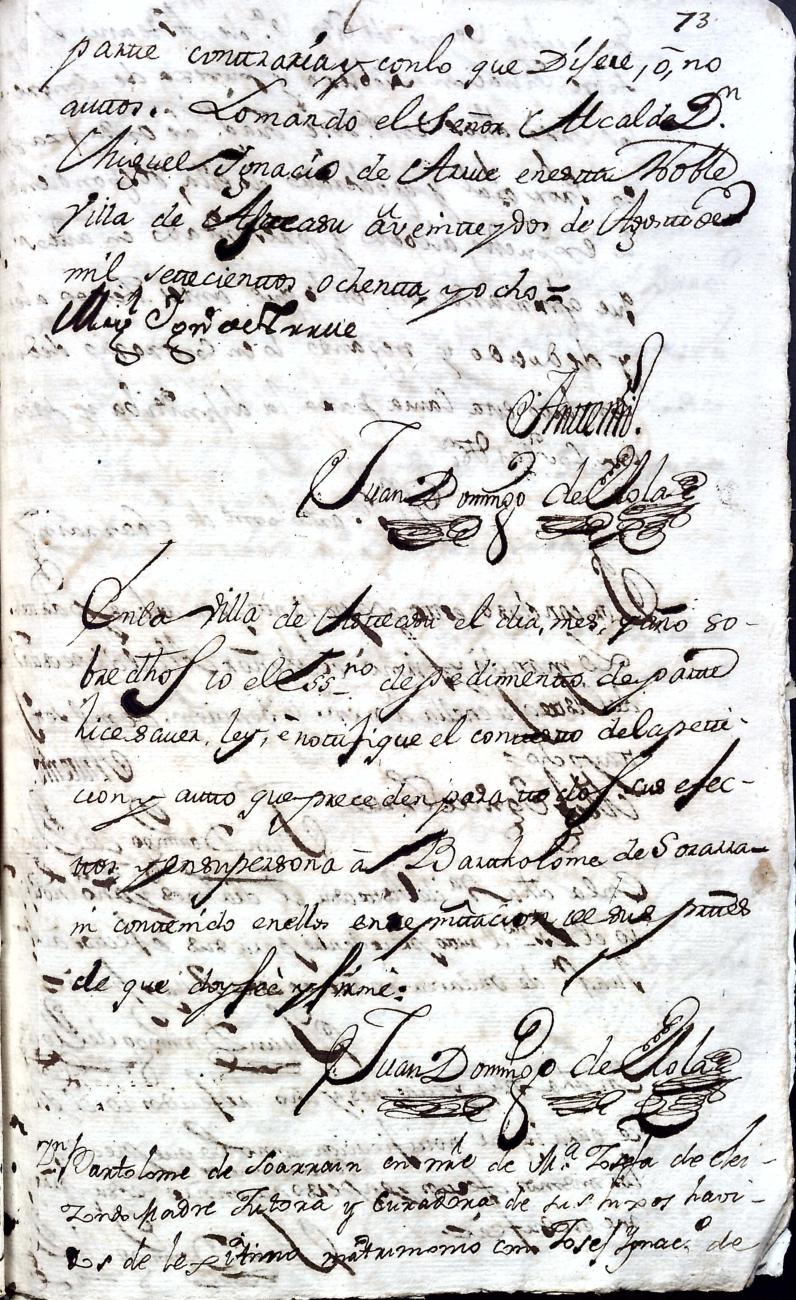 73
parte contraria y con lo que Dijere, ō, no
auttos. Lo mando el Señor Alcalde Dn.
Miguel Ygnacio de Arrue en esta Noble
Villa de Asteasu a veintte y dos de Agosto de
mil settecientos ochenta, y ocho=
Migl Ygno de Arrue
Antemi.
Juan Domingo de Olola
En la Villa de Asteasu el dia, mes, y año so-
bredhos io el Essno de pedimento de parte
hice saver, ley, è notifique el contexto de la peti-
cion y autto que preceden para ttodos sus efec-
ttos y en su persona â Bartholome de Sorarra-
in contenido en ellos en
de que doy feè y firmé:
Juan Domingo de Olola
Bartolome de Soarrain en nre de Ma Josefa de
Madre Tutora y Curadora de sus hixos havi-
os de lexitimo matrimonio con Josef Ygnaco de